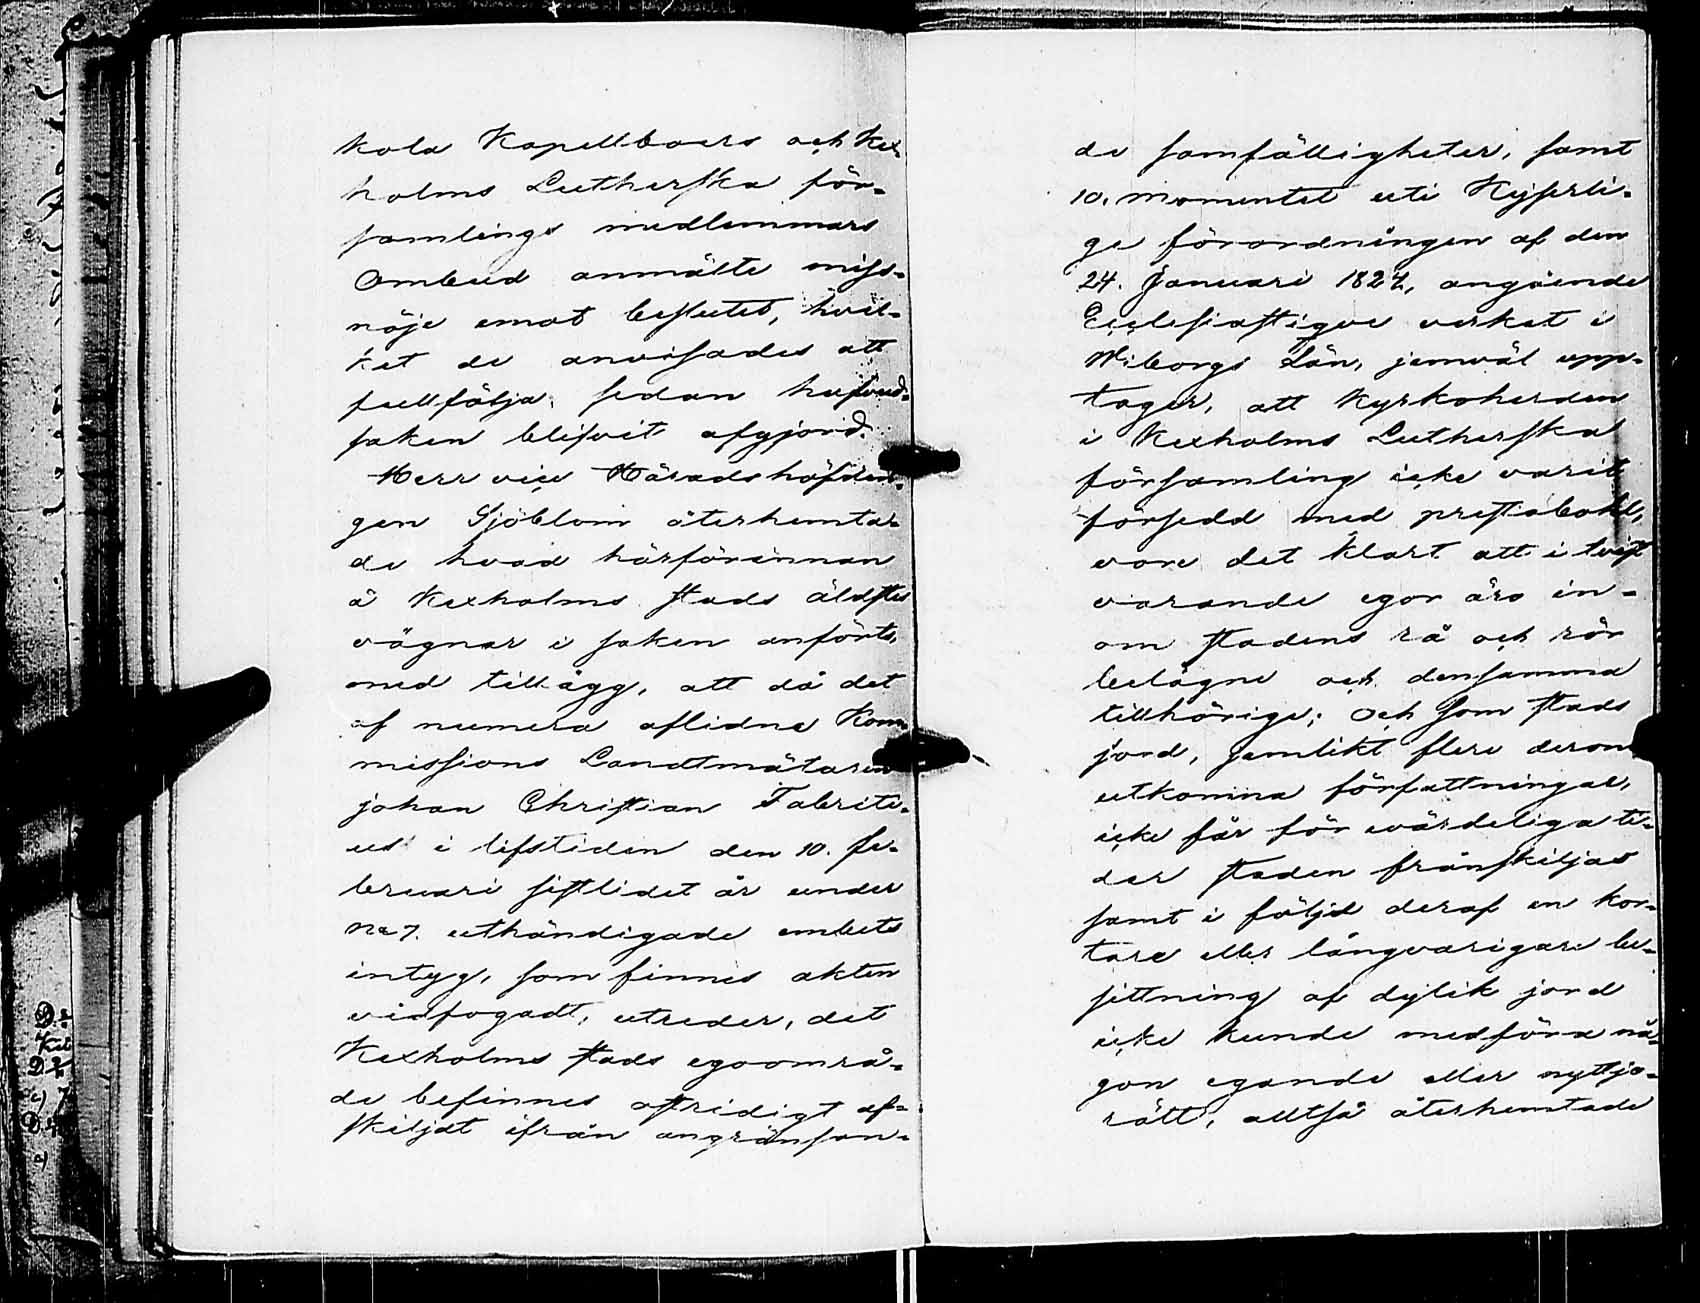 kola Kapellboers och Kex
holms Lutherska för-
samlings medlemmars
Ombud anmälte miss-
nöje emot beslutet, hvil-
ket de anvisades att
fullfölja, sedan hufvud-
saken blifvit afgjord.
Herr vice Häradshöfdin-
gen Sjöblom återhemta-
de hvad härförinnan
å Kexholms stads äldstes
vägnar i saken anförts,
med tillägg, att då det
af numera aflidne Kom
missions Landtmätaren
johan Christian Fabriti-
us i lifstiden den 10. fe-
bruari sistlidet år under
No 7. uthändigade embets
intyg, som finnes akten
vidfogadt, utreder, det
Kexholms stads egoområ-
de befinnes ostridigt af-
skiljdt ifrån angränsan-
de samfälligheter, samt
10. momentet uti Kejserli-
ga förordningen af den
24. Januari 1827, angående
Ecclesiastique verket i
Wiborgs Län, jemväl upp-
tager, att Kyrkoherden
i Kexholms Lutherska
församling icke varit
försedd med prestabohl,
vore det klart att i tvist
varande egor äro in-
om stadens rå och rör
belägne och densamma
tillhörige; Och som stads
jord, jemlikt flere derom
utkomna författningar,
icke får för evärdeliga ti-
der staden frånskiljas
samt i följd deraf en kor-
tare eller långvarigare be-
sittning af dylik jord
icke kunde medföra nå-
gon egande eller nyttjo-
rätt, alltså återhemtade